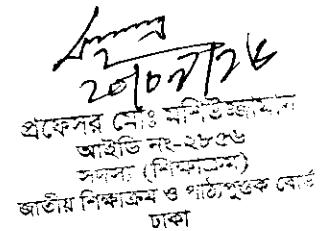 ২০/০৭/২৬
প্রফেসর মোঃ মশিউজ্জামান
আইডি নং-২৮৫৬
সদস্য (শিক্ষাক্রম)
জাতীয় শিক্ষাক্রম ও পাঠ্যপুস্তক বোর্ড
ঢাকা